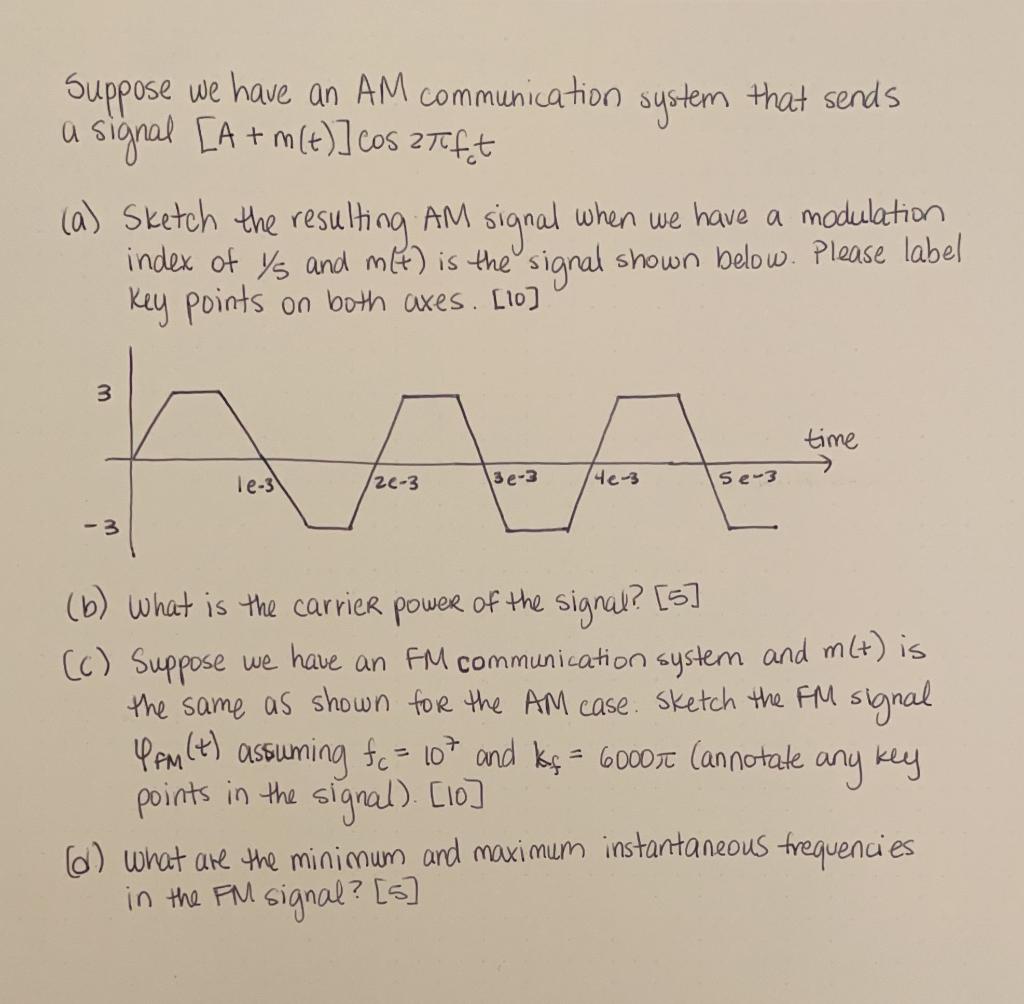 Suppose we have an AM communication system that sends
a signal [A + m(t)] cos 2πf_c t
(a) Sketch the resulting AM signal when we have a modulation
index of 1/5 and m(t) is the signal shown below. Please label
key points on both axes. [10]
3
time
1e-3 2e-3 3e-3 4e-3 5e-3
-3
(b) What is the carrier power of the signal? [5]
(c) Suppose we have an FM communication system and m(t) is
the same as shown for the AM case. Sketch the FM signal
φ_FM(t) assuming f_c = 10^7 and k_f = 6000π (annotate any key
points in the signal). [10]
(d) What are the minimum and maximum instantaneous frequencies
in the FM signal? [5]